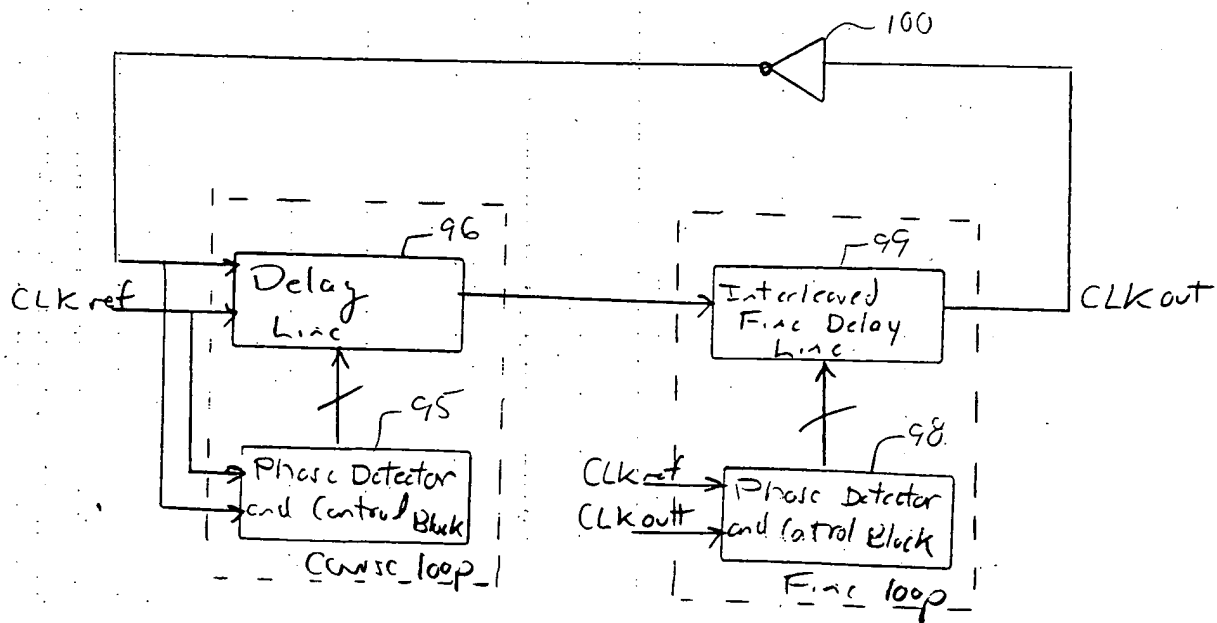 100
96
Delay
Line
CLK ref
99
Interleaved
Fine Delay
Line
CLK out
95
Phase Detector
and Control Block
Coarse loop
98
CLK ref
CLK outt
Phase Detector
and Cotrol Block
Fine loop